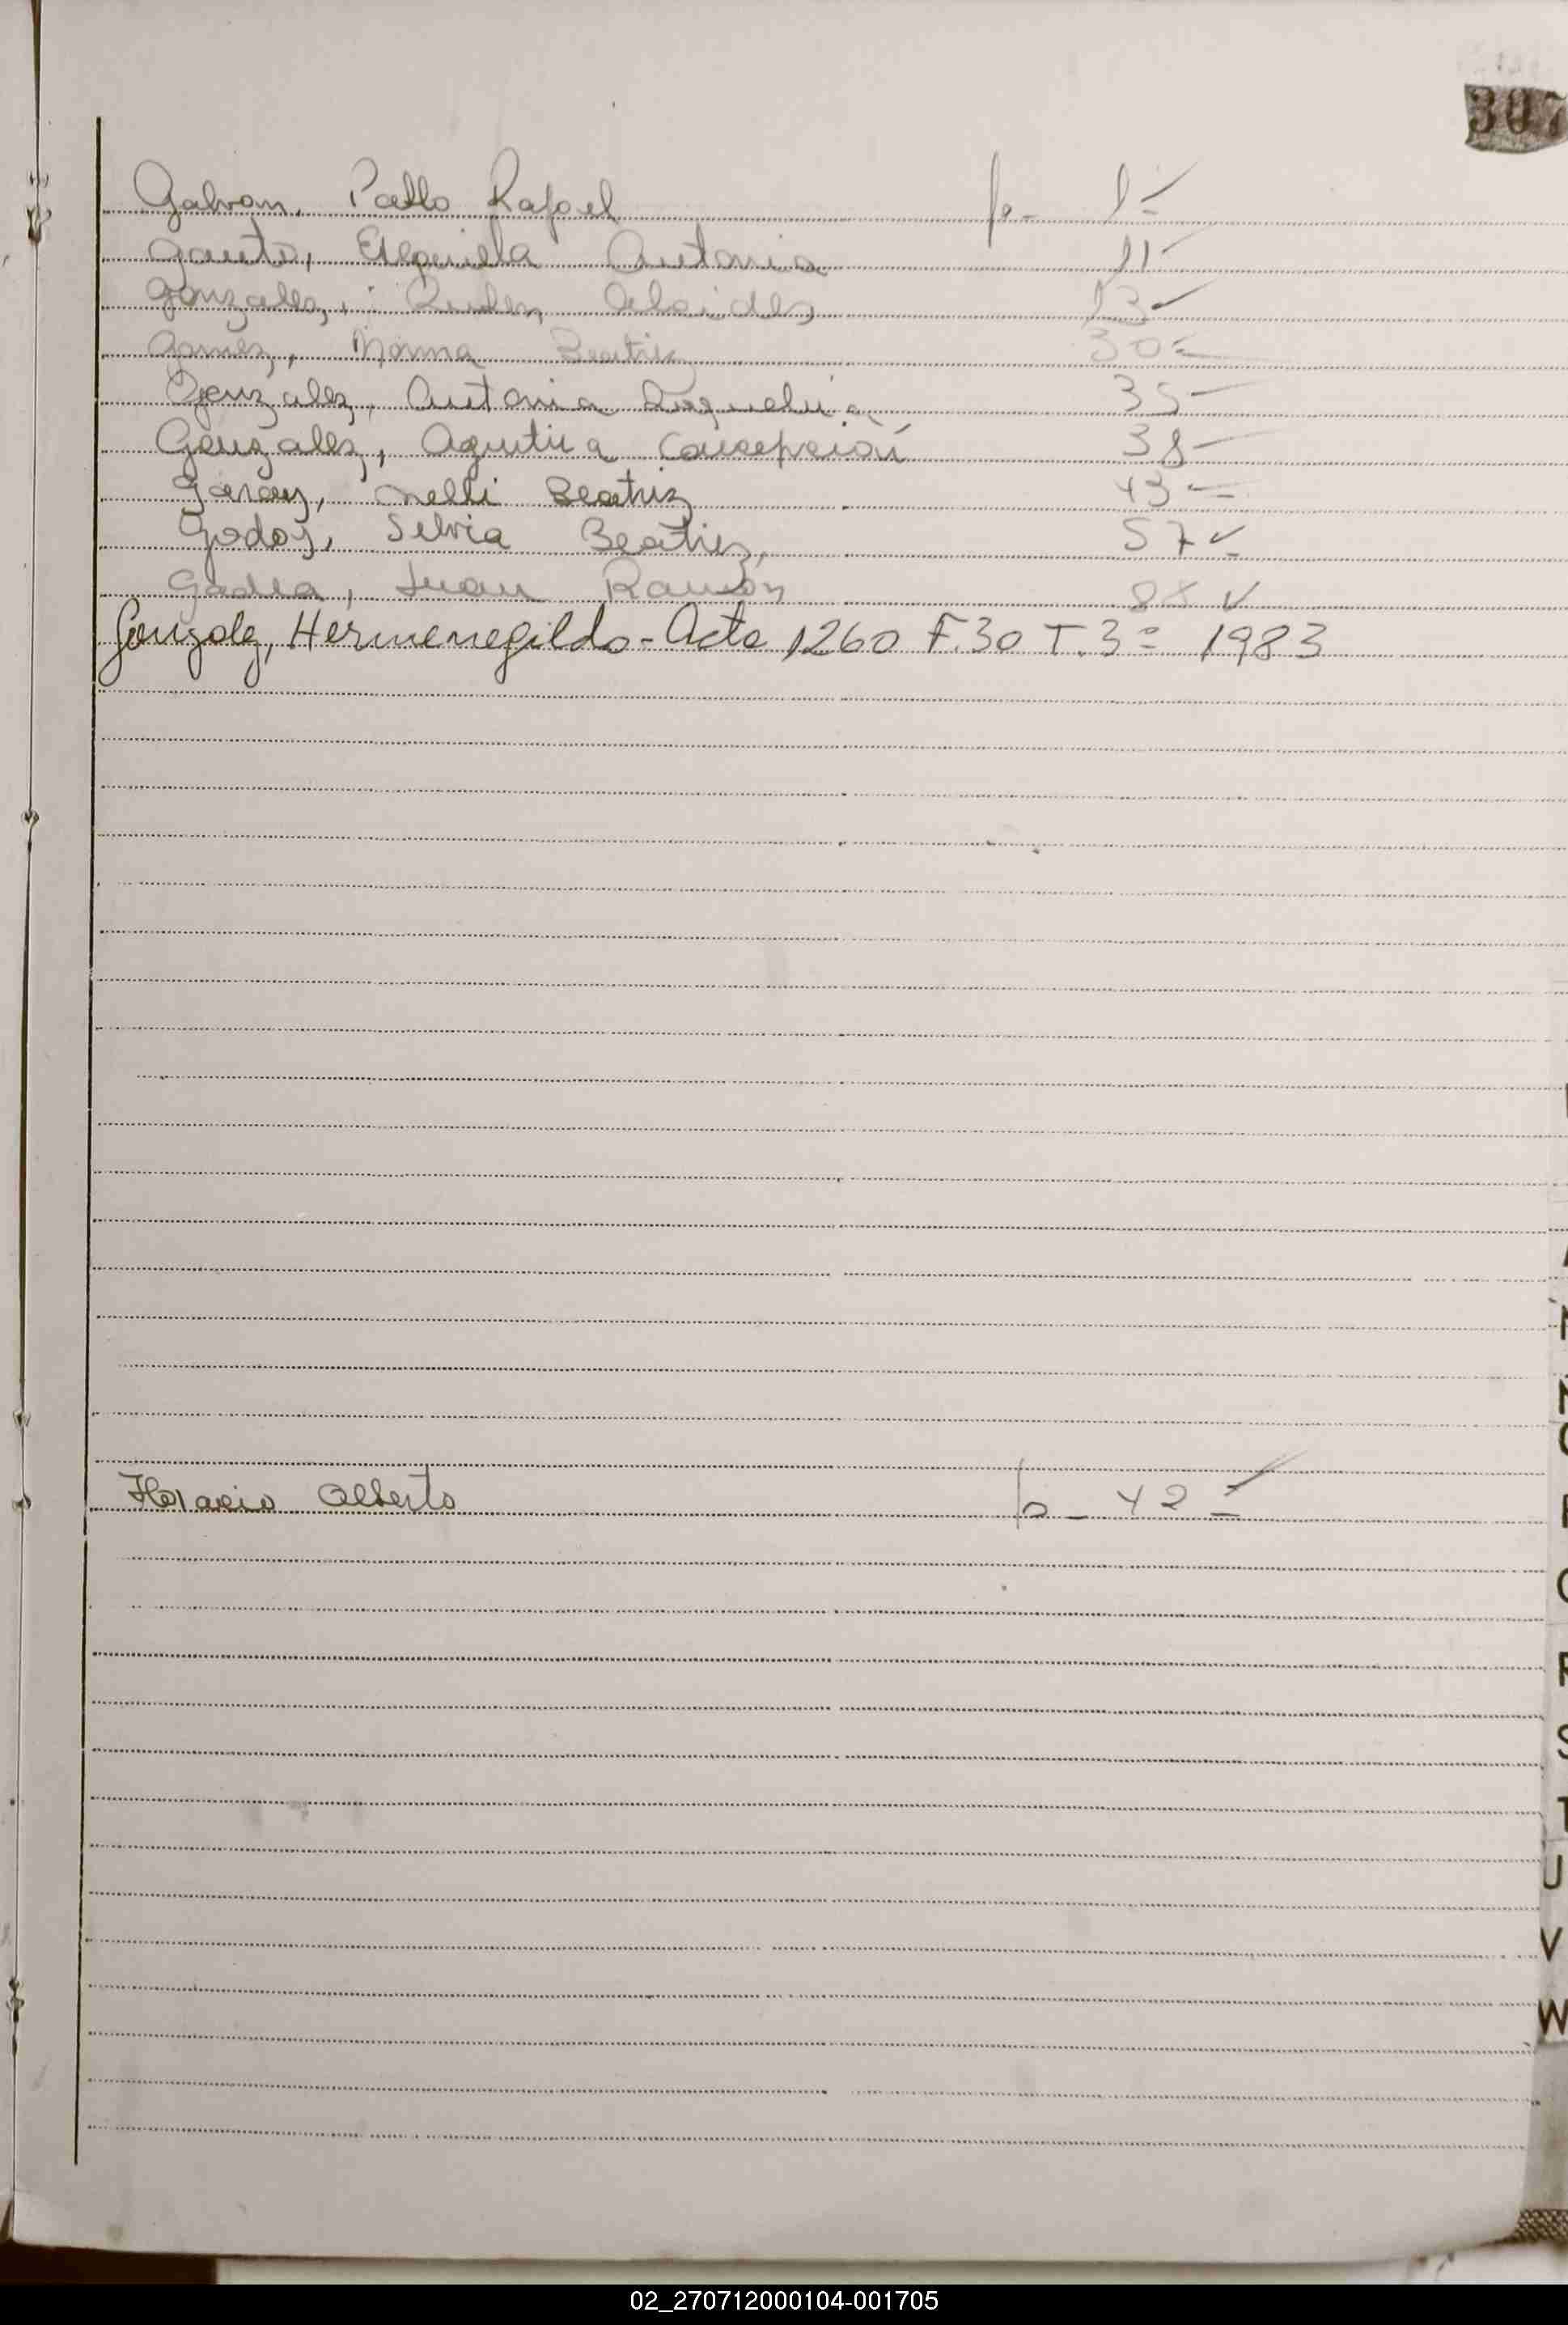 307
Galvan, Pablo Rafael fo- 1=
Gauto, Ezequiela Antonia 11-
Gonzalez, Ruben Alcides 13-
Gomez, Norma Beatriz 30=
Gonzalez, Antonia Requelina 35-
Gonzalez, Agustina Concepción 38-
Garay, Nelli Beatriz 43=
Godoy, Silvia Beatriz, 57
Gadea, Juan Ramón 88
Gonzalez, Hermenegildo - Acta 1260 F.30 T.3º 1983
Horacio Alberto fo- 42=
R
S
T
U
V
W
02_270712000104-001705